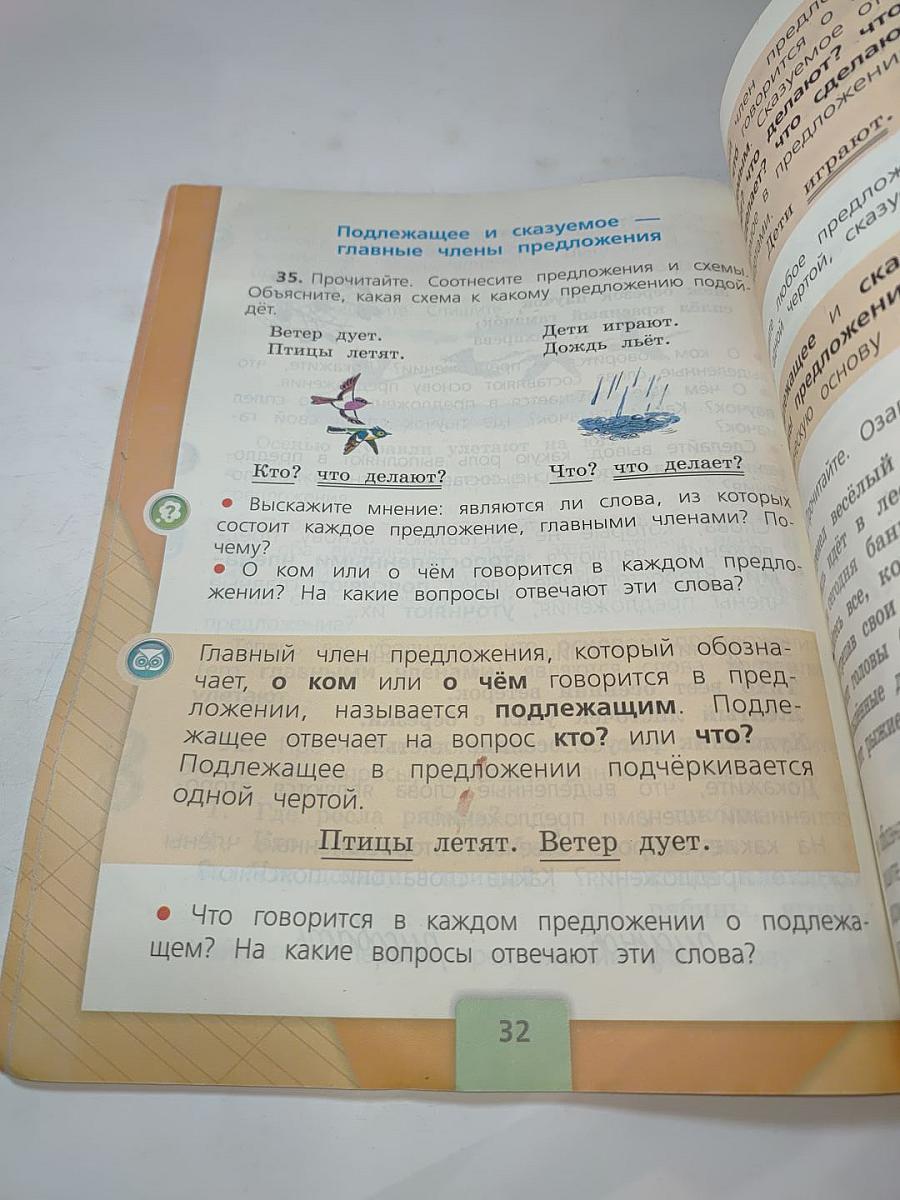 Подлежащее и сказуемое —
главные члены предложения
35. Прочитайте. Соотнесите предложения и схемы.
Объясните, какая схема к какому предложению подой-
дёт.
Ветер дует.
Птицы летят.
Дети играют.
Дождь льёт.
Кто? что делают?
Что? что делает?
• Выскажите мнение: являются ли слова, из которых
состоит каждое предложение, главными членами? По-
чему?
• О ком или о чём говорится в каждом предло-
жении? На какие вопросы отвечают эти слова?
Главный член предложения, который обозна-
чает, о ком или о чём говорится в пред-
ложении, называется подлежащим. Подле-
жащее отвечает на вопрос кто? или что?
Подлежащее в предложении подчёркивается
одной чертой.
Птицы летят. Ветер дует.
• Что говорится в каждом предложении о подлежа-
щем? На какие вопросы отвечают эти слова?
32
член предло
говорится о
Сказуемое от
что делают? что
что сделаю
в предложени
Дети играют.
любое предлож
чертой, сказу
и ска
предложени
скую основу
Оза
весёлый
идёт в лес
сегодня
все, ко
свои
головы
рыжие